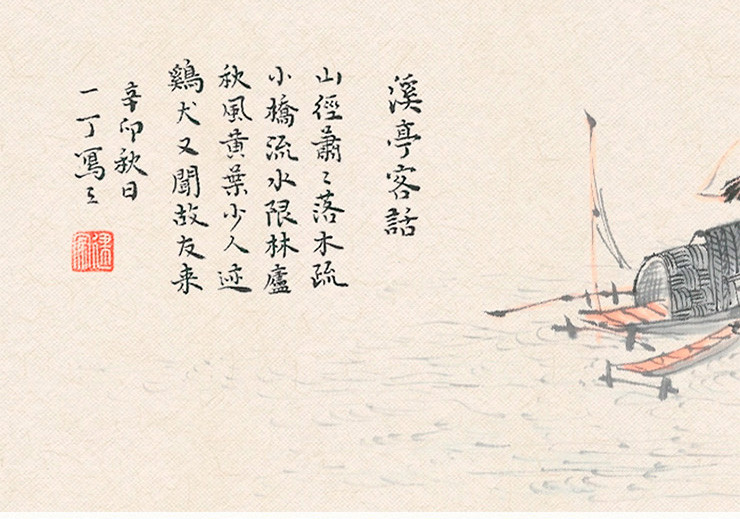 溪亭客話
山徑蕭〻落木疏
小橋流水限林廬
秋風黄葉少人迹
鷄犬又聞故友来
辛卯秋日
一丁寫之